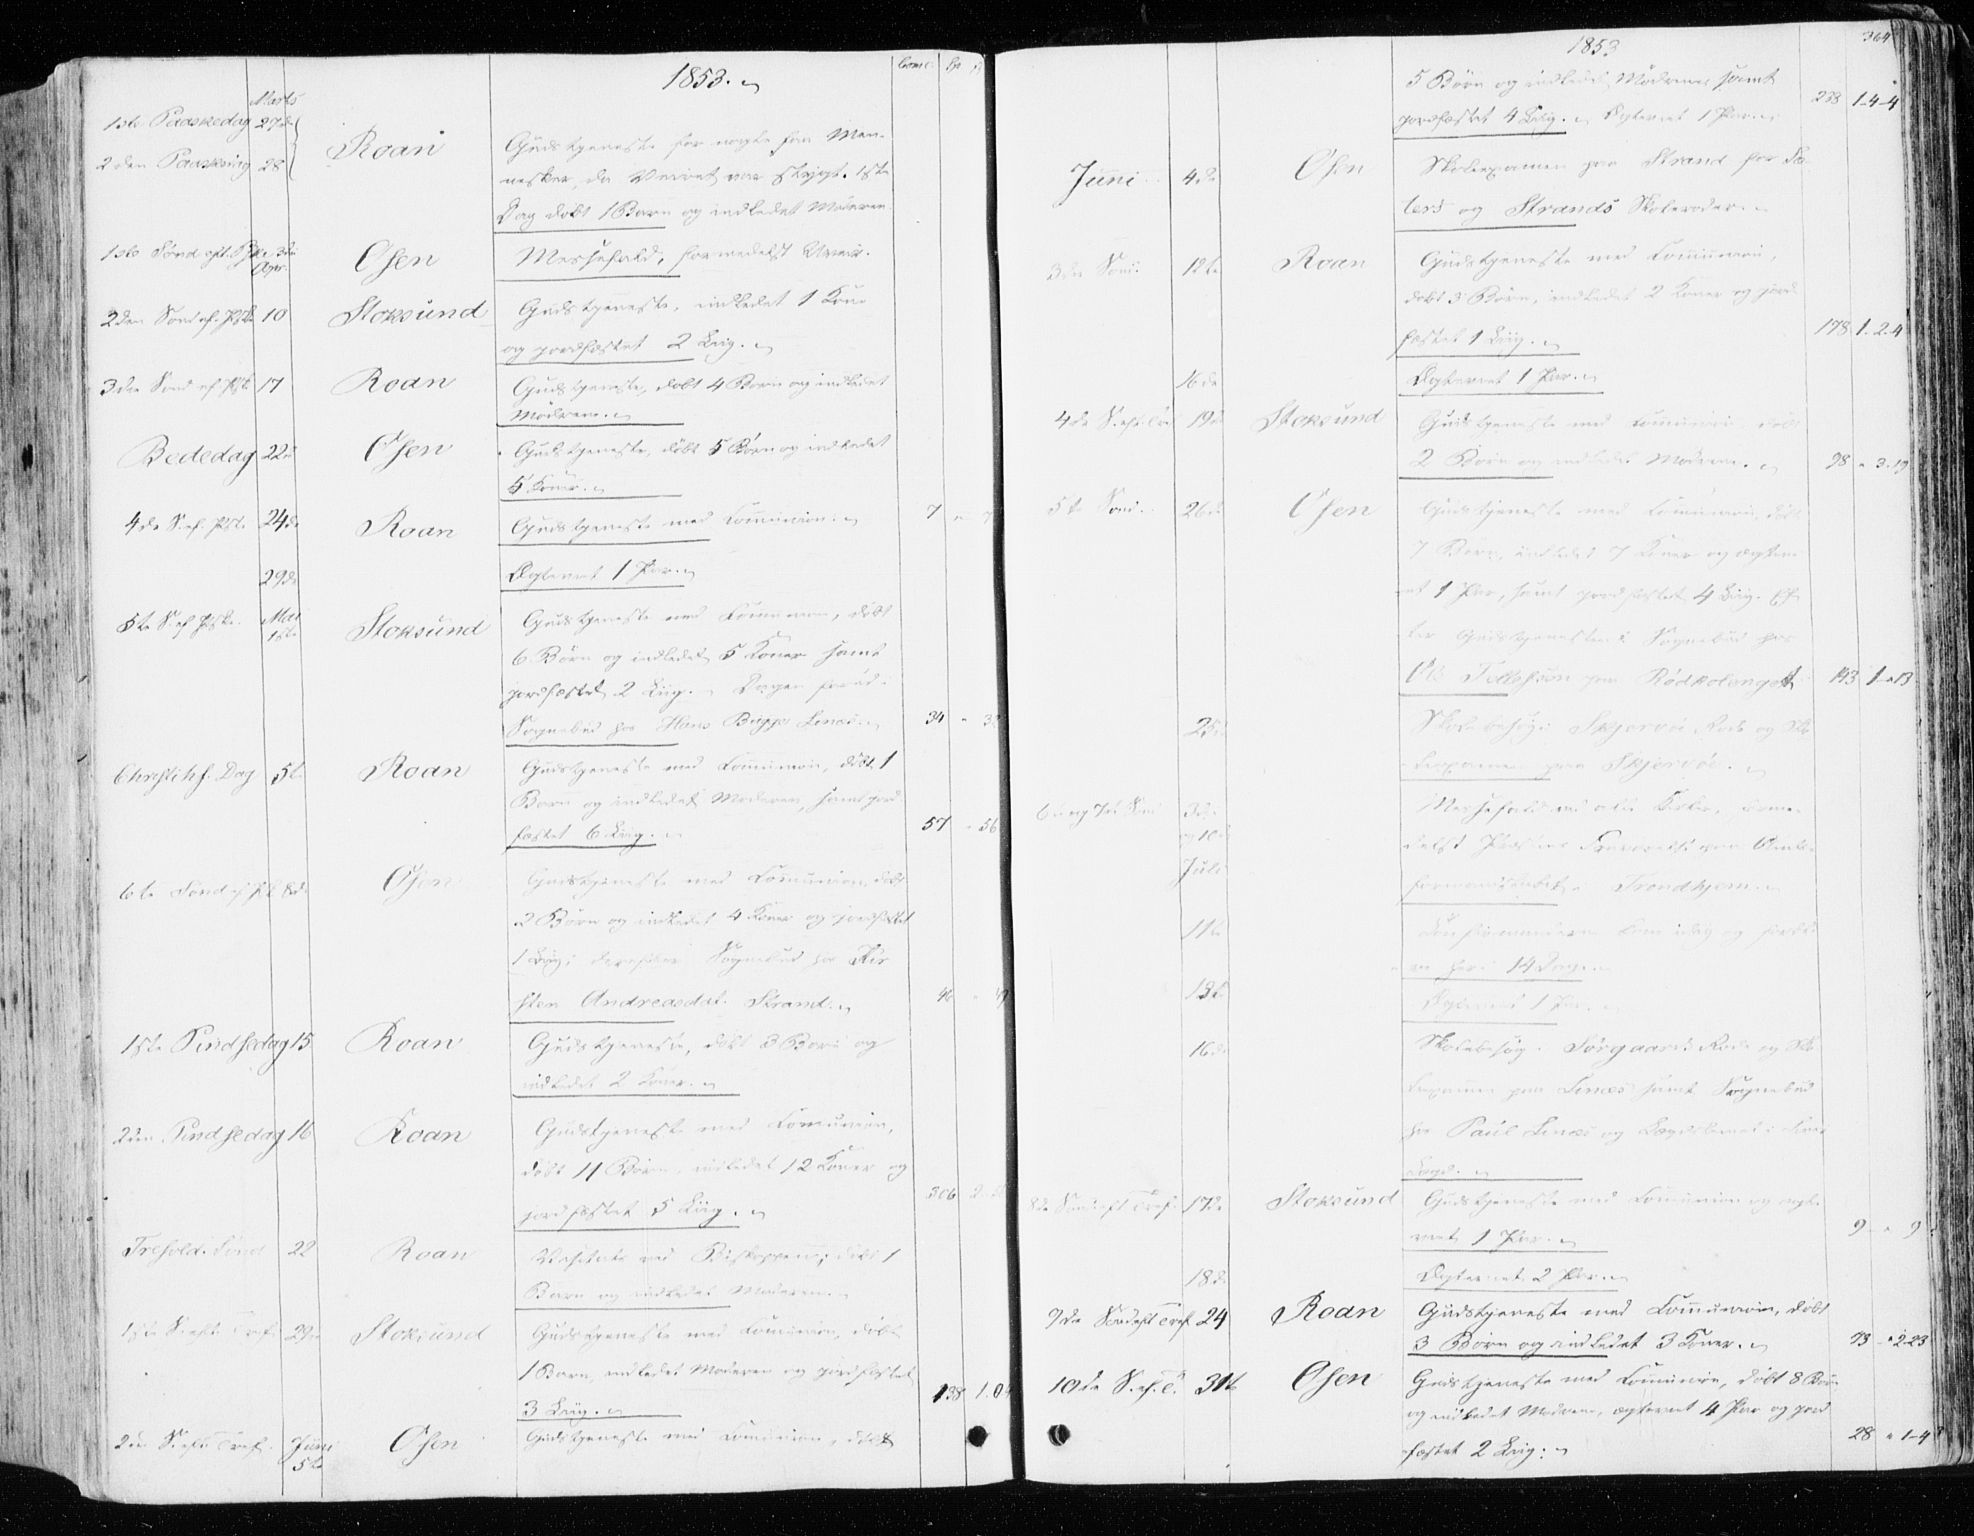 1853.
Comc.
1ste Paaskedag Marts 27de
2den Paaskedag 28 Roan Gudstjeneste for nogle faa Men-
nesker, da Veiret var stygt. 1ste
Dag døbt 1 Barn og indledet Moderen
1ste Sønd. eft. Pske 3die Apr. Osen Messefald, formedelst Uveir.
2den Sønd ef. Pske 10 Stoksund Gudstjeneste, indledet 1 Kone
og jordfæstet 2 Liig.
3die Sønd ef. Pske 17 Roan Gudstjeneste, døbt 4 Børn og indledet
Mødrene.
Bededag 22 Osen Gudstjeneste, døbt 5 Børn og indledet
5 Koner.
4de S. ef. Pske 24de Roan Gudstjeneste med Communion. 7 " 7
29de Ægteviet 1 Par.
5te S. ef Pske. Mai 1ste Stoksund Gudstjeneste med Communion, døbt
6 Børn og indledet 5 Koner samt
jordfæstet 2 Liig. Dagen forud
Sognebud hos Hans Linæs. 34
Christi hf. Dag 5te Roan Gudstjeneste med Communion, døbt 1
Barn og indledet Moderen, samt jord-
fæstet 6 Liig. 57 " 56
6te Sønd ef Psk 8de Osen Gudstjeneste med Communion, døbt
3 Børn og indledet 4 Koner og jordfæstet
1 Liig; derefter Sognebud hos Kir-
sten Andreasdat. Strand.
1ste Pindsedag 15 Roan Gudstjeneste, døbt 3 Børn og
indledet 2 Koner.
2den Pindsedag 16 Roan Gudstjeneste med Communion,
døbt 11 Børn, indledet 12 Koner og
jordfæstet 5 Liig. 306
Trefold. Sønd 22 Roan Visitats ved Biskoppen; døbt 1
Barn og indledet Moderen.
1ste S. eft. Tref. 29de Stoksund Gudstjeneste med Communion, døbt
1 Barn, indledet Moderen og jordfæstet
3 Liig. 138
2den S. eft. Tref. Juni 5te Osen Gudstjeneste med Communion, døbt
1853
364
5 Børn og indledet Mødrene samt
jordfæstet 4 Liig. Ægteviet 1 Par. 238 1-4-4
Juni 4de Osen Skoleexamen paa Strand for Sæ-
ters og Strands Skoleroder.
3die Sønd. 12te Roan Gudstjeneste med Communion,
døbt 3 Børn, indledet 2 Koner og jord-
fæstet 1 Liig. 178 1-2-4
16de Ægteviet 1 Par.
4de S. eft. Tref 19de Stoksund Gudstjeneste med Communion, døbt
2 Børn og indledet Mødrene. 98 " 3-19
5te Sønd. 26de Osen Gudstjeneste med Communion, døbt
7 Børn, indledet 7 Koner og ægtevi-
et 1 Par, samt jordfæstet 4 Liig. Ef-
ter Gudstjenesten Sognebud hos
Tollefson paa 143
25de Skolebesøg i Skjervøe Rode og Sko-
leexamen paa Skjervøe.
6te og 7de Sønd 3die og 10de Juli Messefald ved alle Kirker, forme-
delst Præstens Fraværelse paa
i Trondhjem.
11te Confirmanderne kom idag og
her i 14 Dage.
Ægteviet 1 Par.
16de Skolebesøg i Sørgaards Rode og Sko-
leexamen paa Linæs samt Sognebud
hos Paul Linæs og i
Lægd.
8de Sønd eft Tref. 17de Stoksund Gudstjeneste med Communion og ægte-
viet 1 Par. 9 " 9
18de Ægteviet 2 Par.
9de Sønd eft Tref 24 Roan Gudstjeneste med Communion, døbt
3 Børn og indledet 3 Koner. 73 " 2-23
10de S. ef. T. 31te Osen Gudstjeneste med Communion, døbt 8 Børn
og indledet Mødrene, ægteviet 4 Par og jord-
fæstet 2 Liig. 28 " 1-4